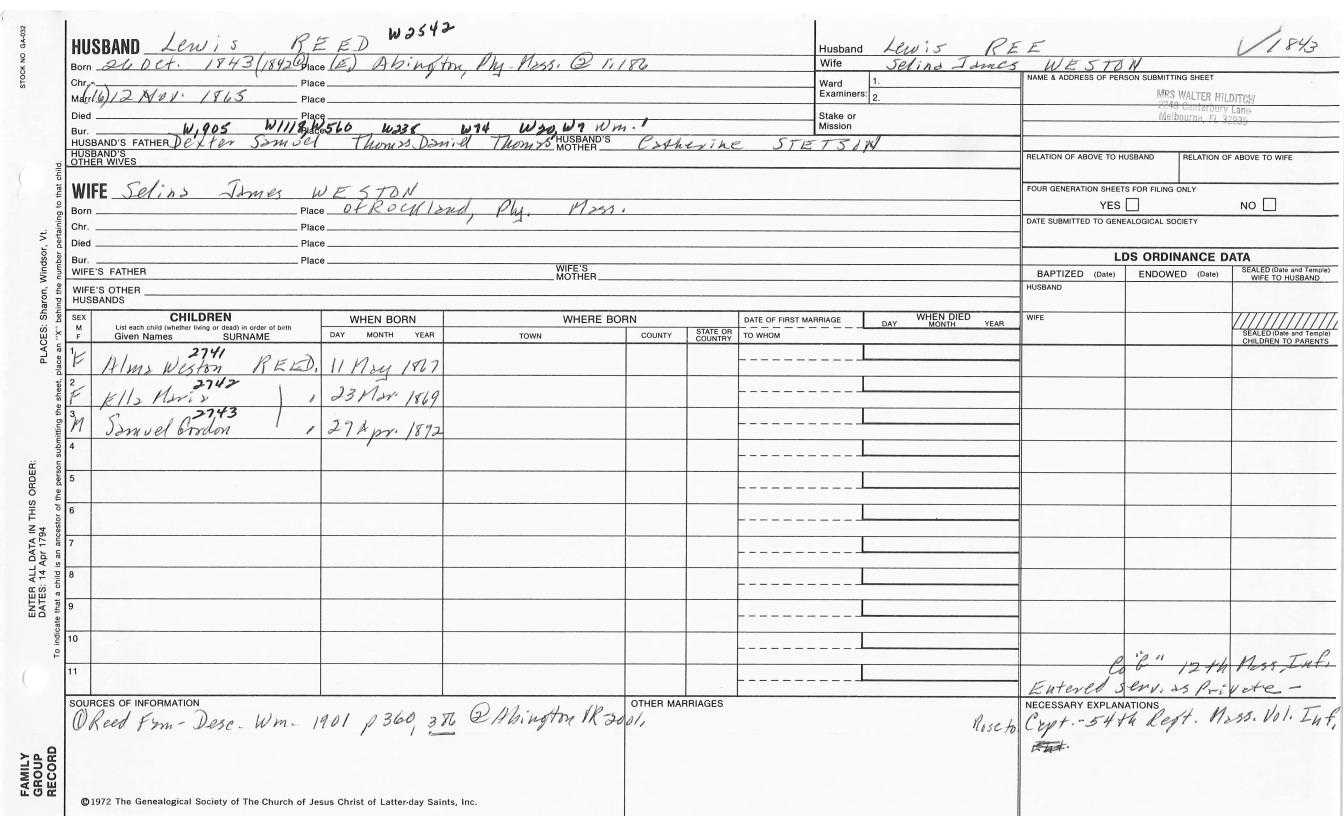 STOCK NO GA-032
HUSBAND Lewis REED W2542
Born 26 Oct. 1843 (1842@) Place (E) Abington, Ply. Mass. @ 1:186
Chr. Place
Marr. (16) 12 Nov. 1865 Place
Died Place
Bur. Place
W,905 W1118 W560 W235 W74 W20, W7 Wm.1
HUSBAND'S FATHER Dexter Samuel Thomas Daniel Thomas HUSBAND'S MOTHER Catherine STETSON
HUSBAND'S OTHER WIVES
WIFE Selina James WESTON
Born Place of Rockland, Ply. Mass.
Chr. Place
Died Place
Bur. Place
WIFE'S FATHER WIFE'S MOTHER
WIFE'S OTHER HUSBANDS
Husband Lewis REE 1843
Wife Selina James WESTON
Ward Examiners: 1. 2.
Stake or Mission
NAME & ADDRESS OF PERSON SUBMITTING SHEET
MRS WALTER HILDITCH
Canterbury Lane
Melbourne, FL 32935
RELATION OF ABOVE TO HUSBAND RELATION OF ABOVE TO WIFE
FOUR GENERATION SHEETS FOR FILING ONLY
YES NO
DATE SUBMITTED TO GENEALOGICAL SOCIETY
LDS ORDINANCE DATA
BAPTIZED (Date) ENDOWED (Date) SEALED (Date and Temple) WIFE TO HUSBAND
HUSBAND
WIFE
SEALED (Date and Temple) CHILDREN TO PARENTS
SEX M F CHILDREN WHEN BORN WHERE BORN DATE OF FIRST MARRIAGE WHEN DIED
List each child (whether living or dead) in order of birth
Given Names SURNAME DAY MONTH YEAR TOWN COUNTY STATE OR COUNTRY TO WHOM DAY MONTH YEAR
2741
1 F Alma Weston REED. 11 May 1867
2742
2 F Ella Maria " 23 Mar 1869
2743
3 M Samuel Gordon " 27 Apr. 1872
4
5
6
7
8
9
10
11
Co "C" 12th Mass Inf.
Entered serv. as Private -
SOURCES OF INFORMATION
① Reed Fam- Desc. Wm. 1901 p 360, 386 @ Abington VR 2001,
OTHER MARRIAGES
NECESSARY EXPLANATIONS
Rose to Capt. - 54th Regt. Mass. Vol. Inf,
©1972 The Genealogical Society of The Church of Jesus Christ of Latter-day Saints, Inc.
FAMILY GROUP RECORD
ENTER ALL DATA IN THIS ORDER:
DATES: 14 Apr 1794
PLACES: Sharon, Windsor, Vt.
To indicate that a child is an ancestor of the person submitting the sheet, place an "X" behind the number pertaining to that child.